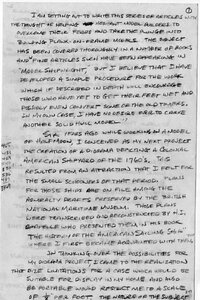 1
I AM SETTING OUT TO WRITE THIS SERIES OF ARTICLES WITH
THE THOUGHT OF HELPING HESITANT MODEL BUILDERS TO
OVERCOME THEIR FEARS AND TAKE THE PLUNGE INTO
BUILDING PLANK ON FRAME MODELS. THE SUBJECT
HAS BEEN COVERED THOROUGHLY IN A NUMBER OF BOOKS
AND FINE ARTICLES SUCH HAVE BEEN APPEARING IN
"MODEL SHIPWRIGHT". BUT I BELIEVE THAT I HAVE
DEVELOPED A SIMPLE PROCEDURE FOR THE WORK
WHICH IF DESCRIBED IN DEPTH WILL ENCOURAGE
THOSE WHO HAVE YET TO GET THEIR FEET WET AND
POSSIBLY EVEN CONVERT SOME OF THE OLD TIMERS.
IN MY OWN CASE, I HAVE NO DESIRE EVER TO CARVE
ANOTHER SOLID HULL MODEL.
SIX YEARS AGO WHILE WORKING ON A MODEL
OF HALF MOON, I CONCEIVED AS MY NEXT PROJECT
THE CREATION OF A DIORAMA DEPICTING A COLONIAL
AMERICAN SHIPYARD OF THE 1760S. THIS
RESULTED FROM AN ATTRACTION THAT I FELT FOR
THE SMALL SCHOONERS OF THAT PERIOD. PLANS
FOR THOSE SHIPS ARE ON FILE AMONG THE
ADMIRALTY DRAFTS PRESERVED BY THE BRITISH
NATIONAL MARITIME MUSEUM. THOSE PLANS
WERE TRANSCRIBED AND RECONSTRUCTED BY H.I.
CHAPELLE WHO PRESENTED THEM IN HIS BOOK
THE HISTORY OF THE AMERICAN SAILING SHIP
WHERE I FIRST BECAME ACQUAINTED WITH THEM.
IN THINKING OVER THE POSSIBILITIES FOR
MY DIORAMA PROJECT I CAME TO THE REALIZATION
THAT SIZE LIMITATIONS FOR A CASE WHICH WOULD BE
SUITABLE FOR DISPLAY IN MY HOME AND ALSO
BE PORTABLE WOULD RESTRICT ME TO A SCALE
OF PER FOOT. THE NATURE OF THE SUBJECT